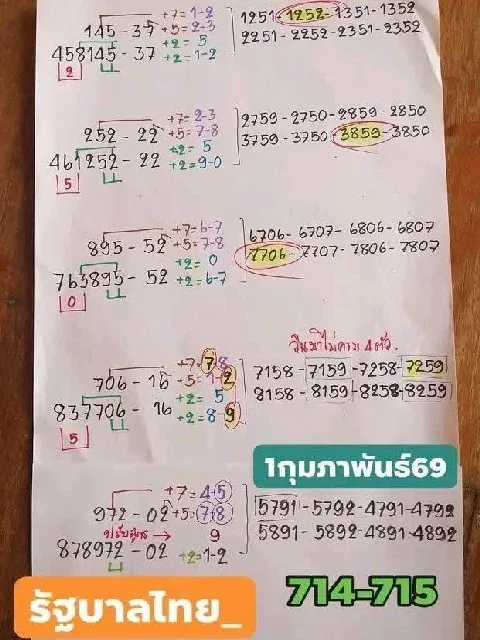 +7=1-2
145-37 +5=2-3
+2= 5
458145-37 +2=1-2
2
1251-1252-1351-1352
2251-2252-2351-2352
+7=2-3
252-22 +5=7-8
+2= 5
461252-22 +2=9-0
5
2759-2750-2859-2850
3759-3750-3859-3850
+7=6-7
895-52 +5=7-8
+2= 0
763895-52 +2=6-7
0
6706-6707-6806-6807
7706-7707-7806-7807
วันมาไม่ครบ 4 ตัว.
+7=7-8
706-16 +5=1-2
+2= 5
837706-16 +2=8-9
5
7158-7159-7258-7259
8158-8159-8258-8259
1กุมภาพันธ์69
+7=4-5
972-02 +5=7-8
ปรับสูตร → 9
878972-02 +2=1-2
5791-5792-4791-4792
5891-5892-4891-4892
714-715
รัฐบาลไทย_